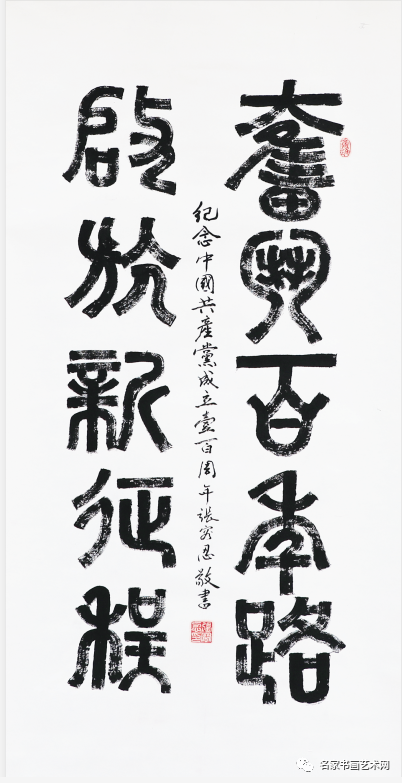 奮鬥百年路
啟航新征程
紀念中國共產黨成立壹百周年張恩敬書
名家书画艺术网